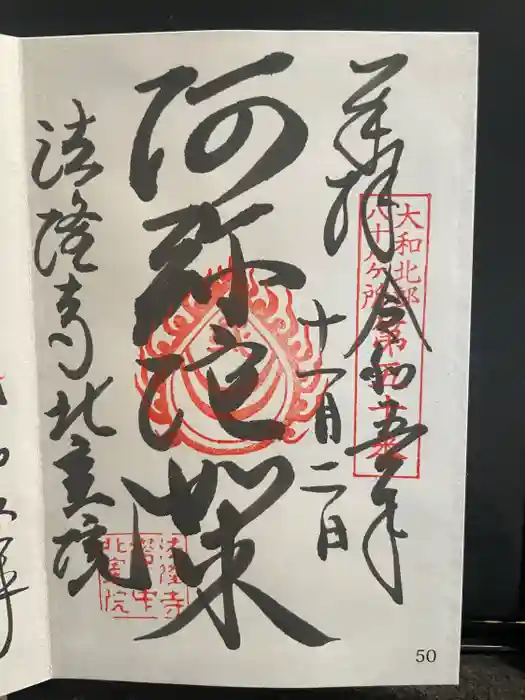 奉拝 令和五年
十一月二日
大和北部
八十八ヶ所
第五十番
阿弥陀如来
法隆寺北室院
法隆寺
北室院
50